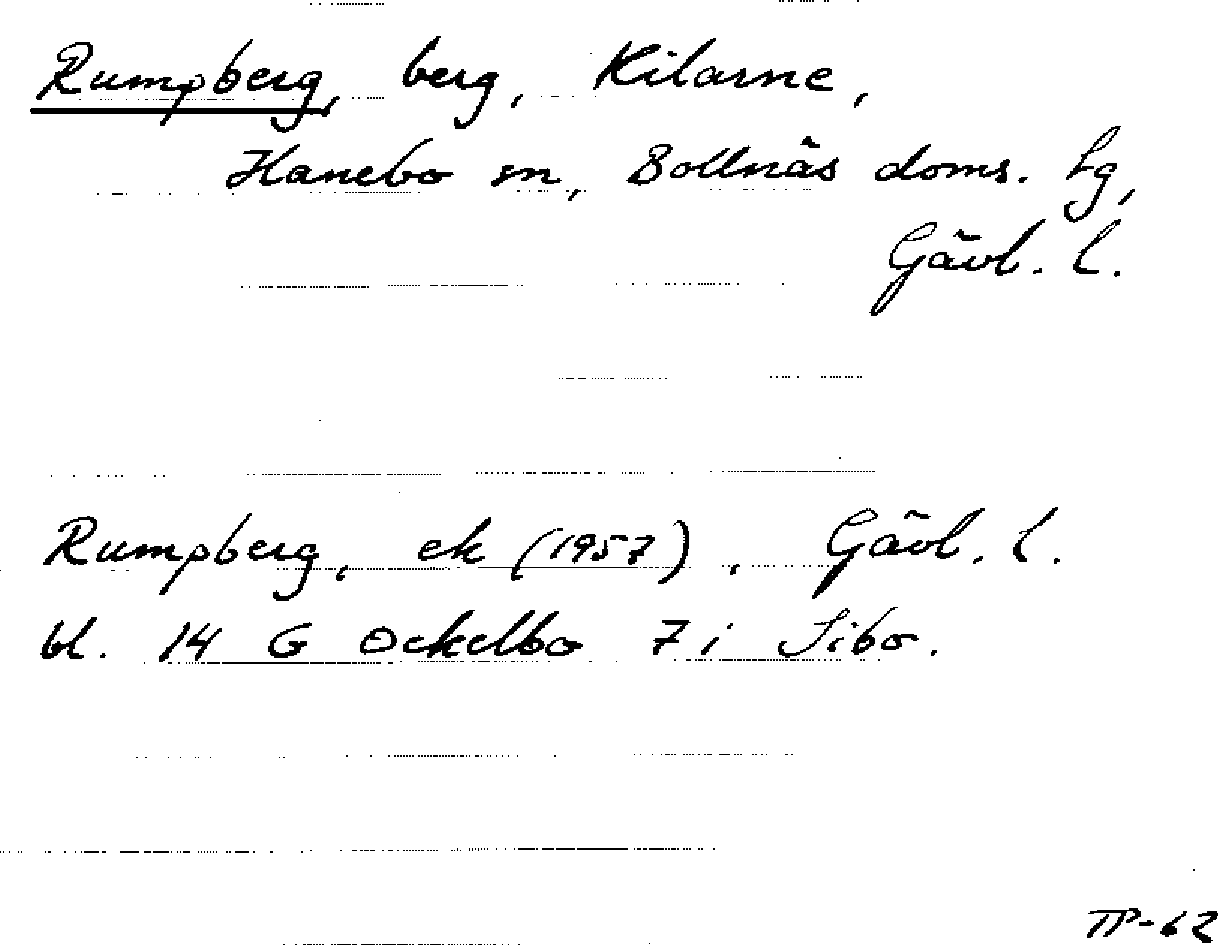 Rumpberg, berg, Kilarne,
Hanebo sn, Bollnäs doms. lg,
Gävl. l.
Rumpberg, ek (1957), Gävl. l.
bl. 14 G Ockelbo 7 i Sibo.
TP-62